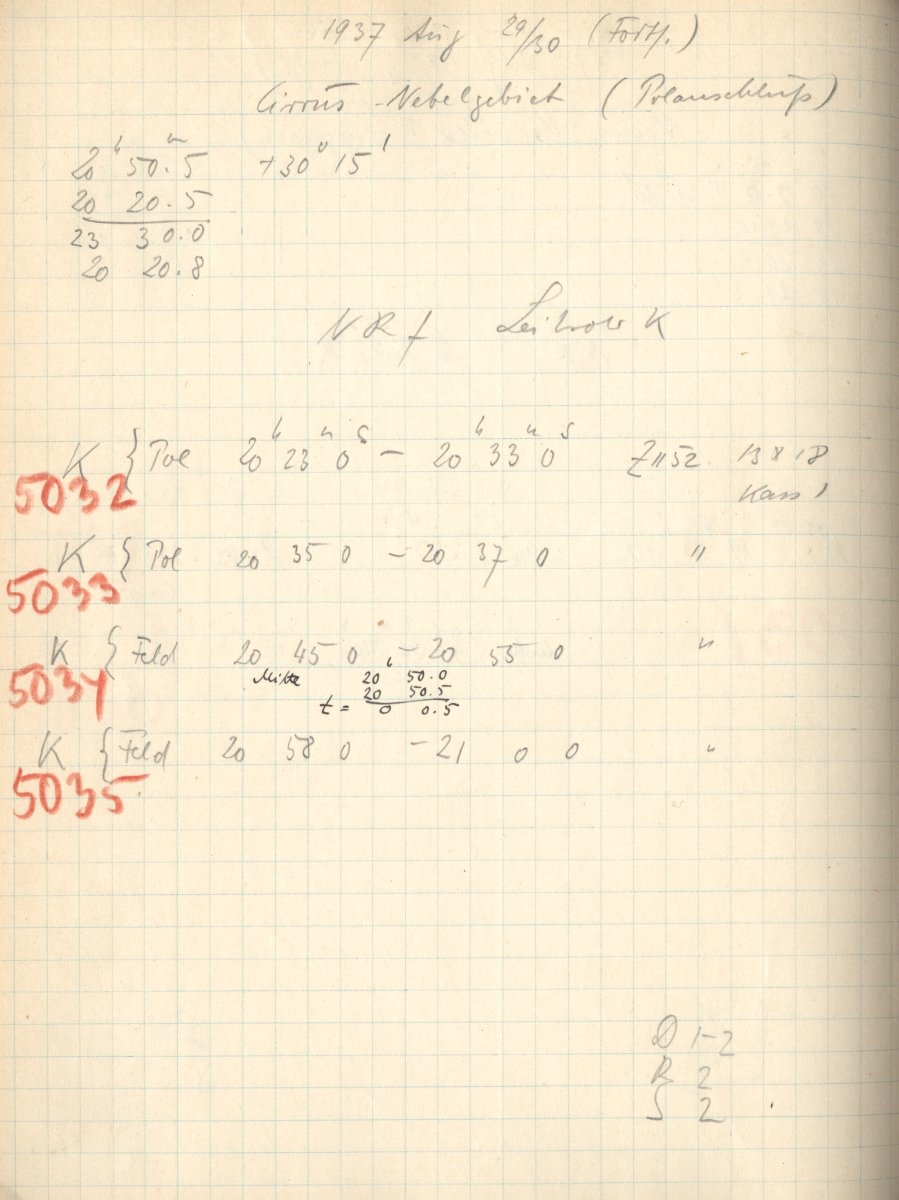 1937 Aug 29/30 (Forts.)
Cirrus-Nebelgebiet (Polanschluß)
20ʰ 50.ᵐ5 +30° 15'
20 20.5
23 30.0
20 20.8
NRf K
K { Pol 20ʰ 23ᵐ 0ˢ - 20ʰ 33ᵐ 0ˢ 13 x 18
5032 Kass 1
K { Pol 20 35 0 - 20 37 0 "
5033
K { Feld 20 45 0 - 20 55 0 "
5034
Mitte 20 50.0
20 50.5
t = 0 0.5
K { Feld 20 58 0 - 21 0 0 "
5035
D 1-2
R 2
S 2